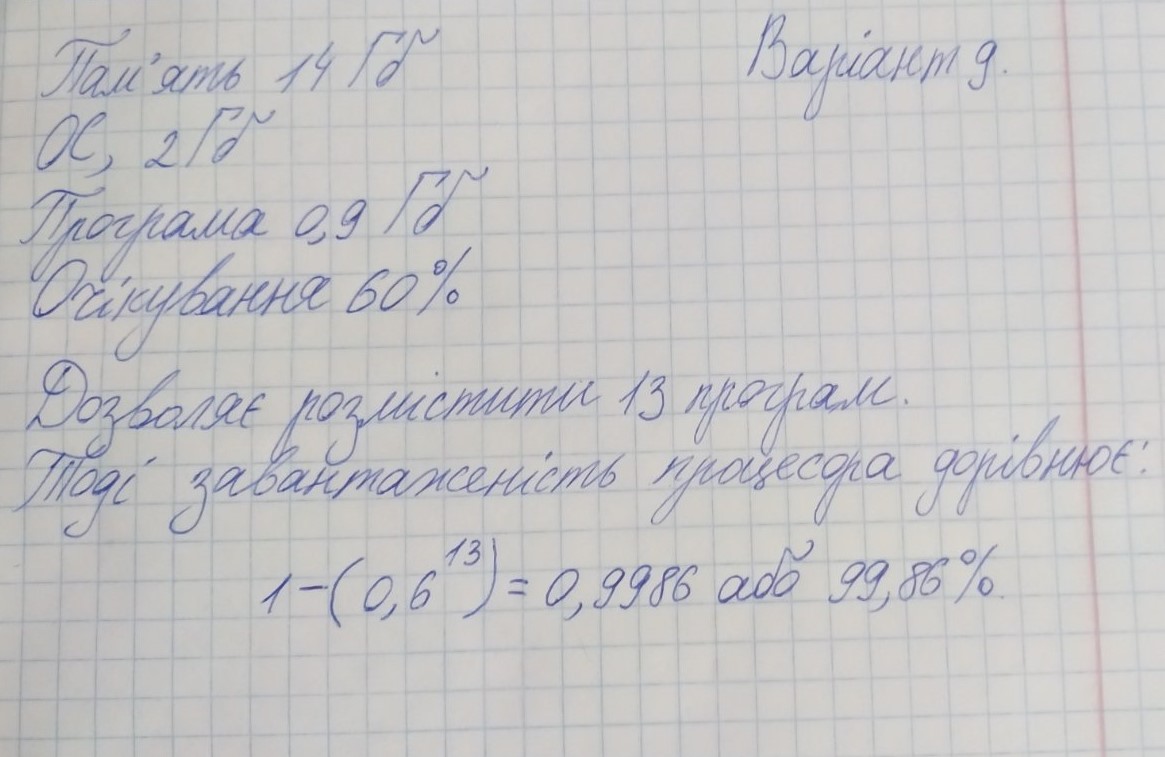 Пам'ять 14 Гб
Варіант 9.
ОС, 2 Гб
Програма 0,9 Гб
Очікування 60%
Дозволяє розмістити 13 програм.
Тоді завантаженість процесора дорівнює:
1-(0,6^13)=0,9986 або 99,86%.